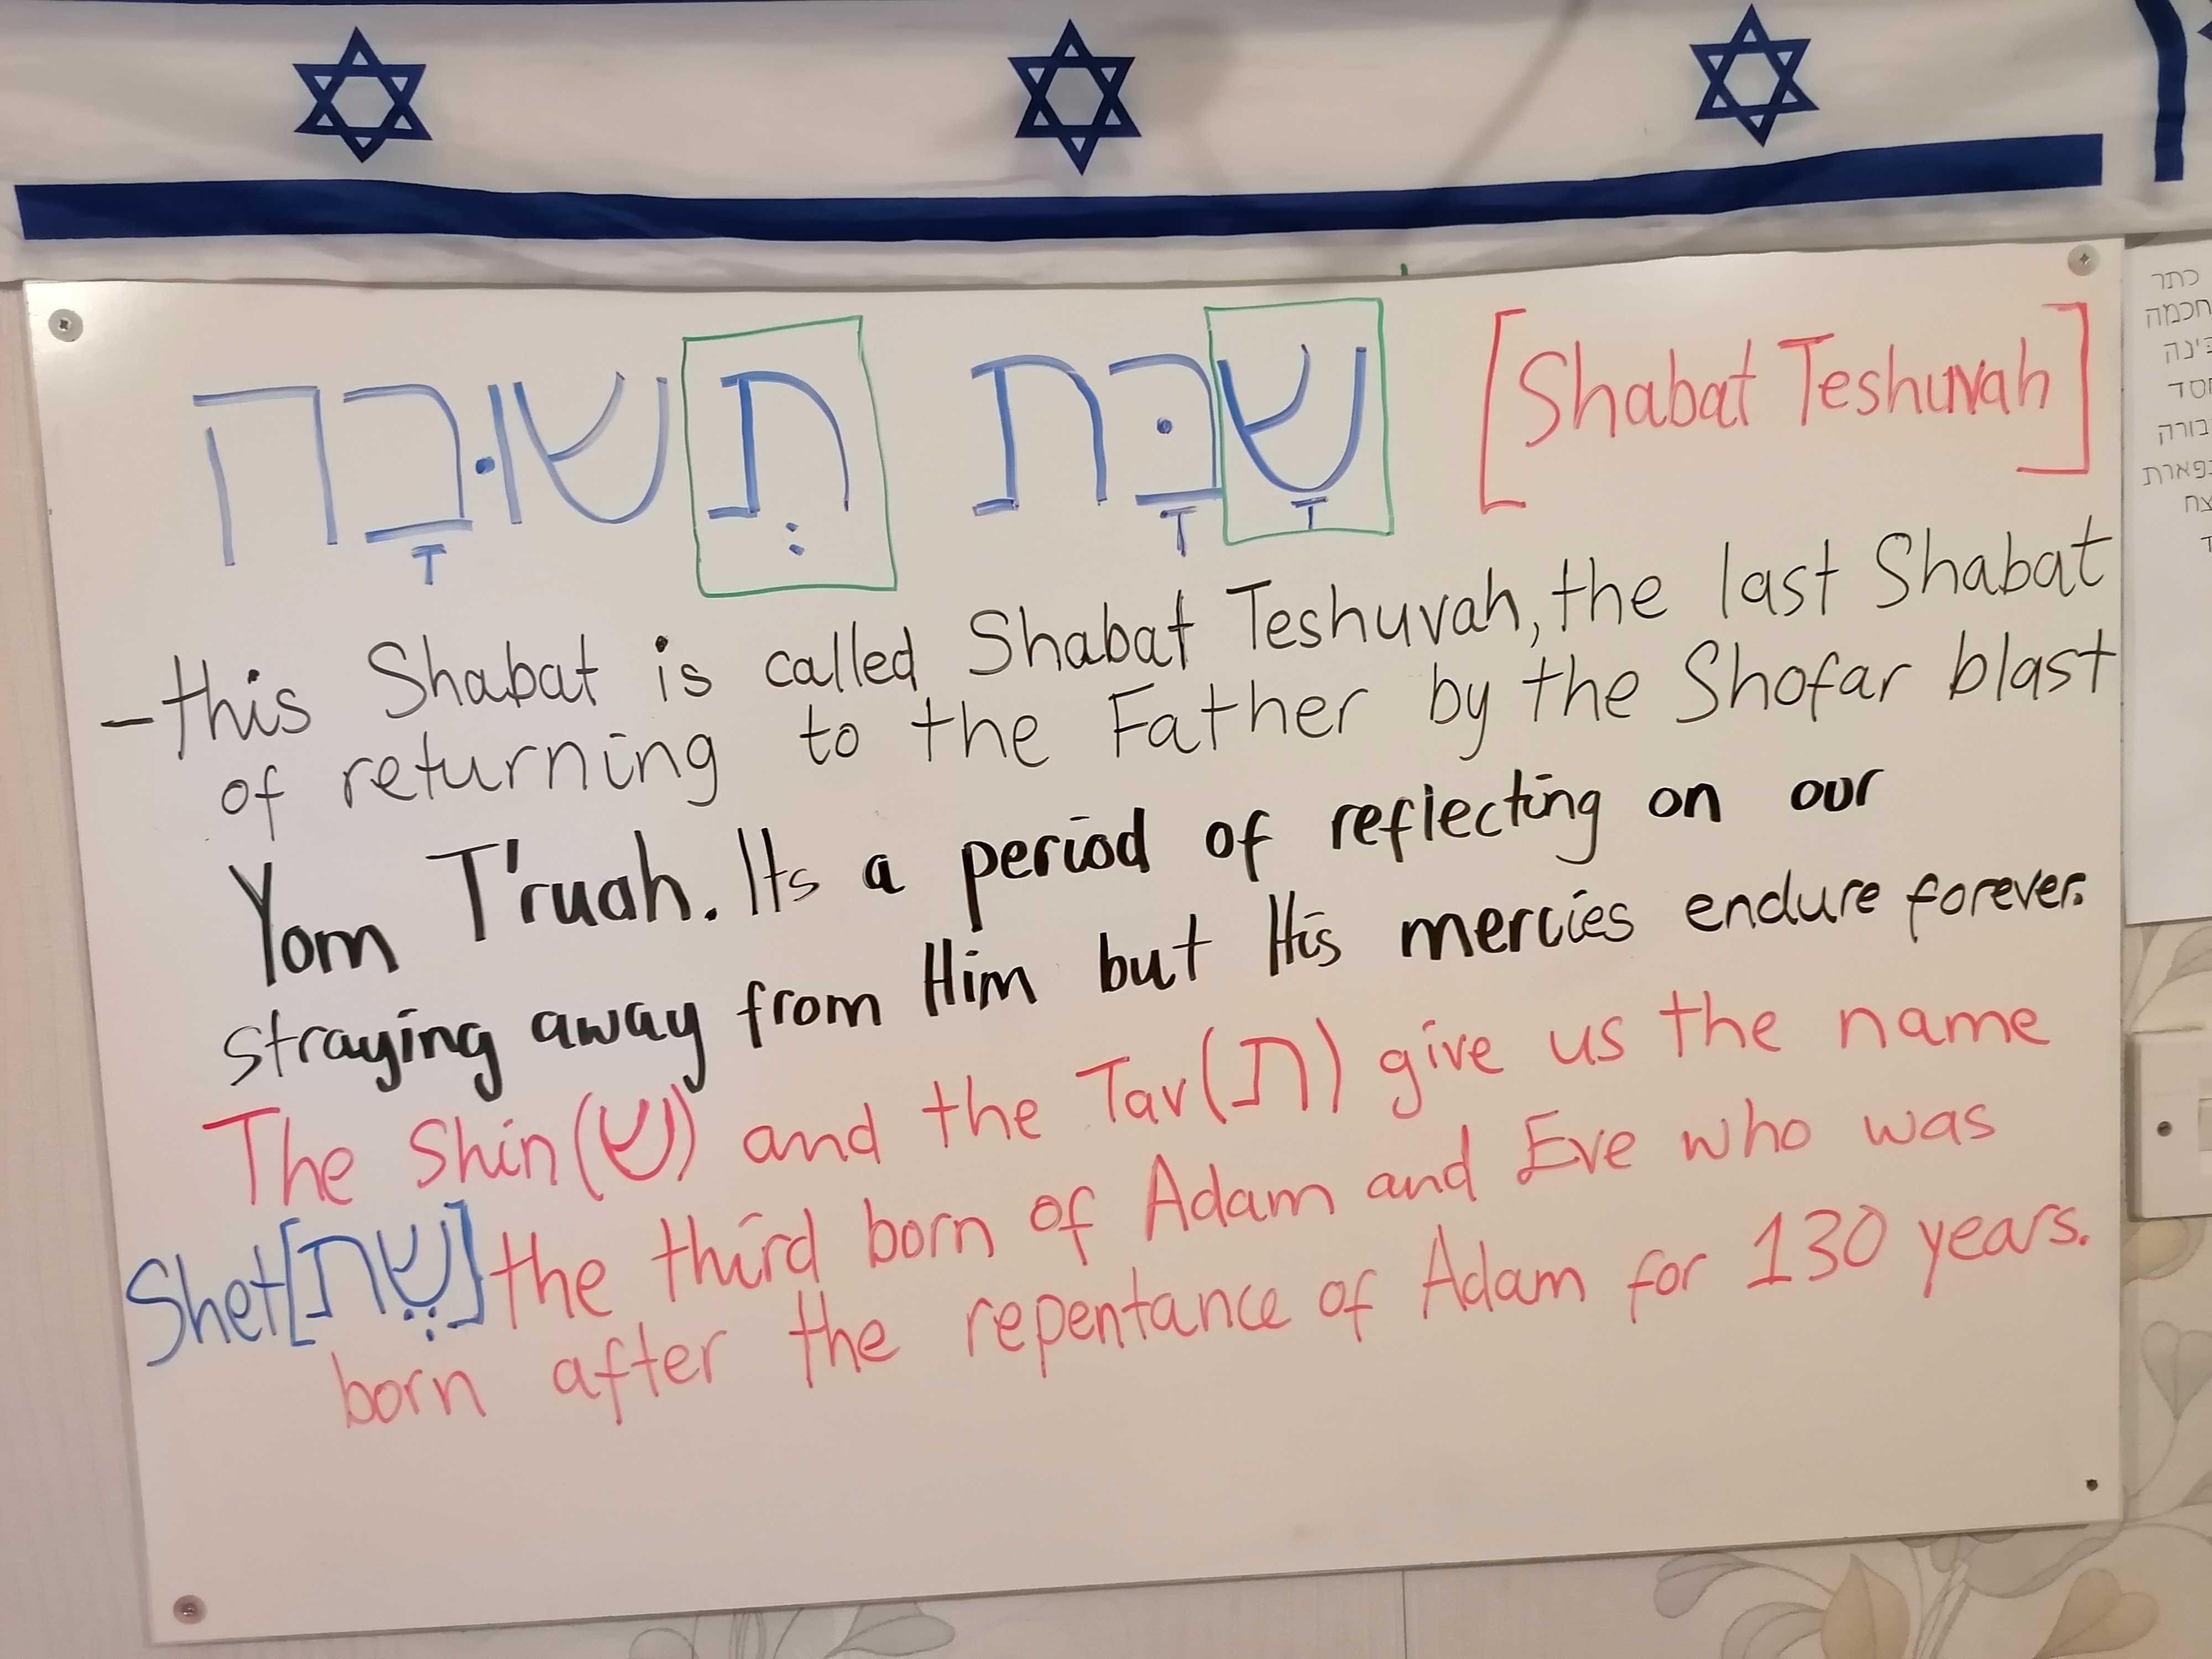 שָׁבָּת תְשׁוּבָה [Shabat Teshuvah]
-this Shabat is called Shabat Teshuvah, the last Shabat
of returning to the Father by the Shofar blast
Yom T'ruah. Its a period of reflecting on our
straying away from Him but His mercies endure forever.
The Shin(ש) and the Tav(ת) give us the name
Shet[שֶׁת] the third born of Adam and Eve who was
born after the repentance of Adam for 130 years.
כתר